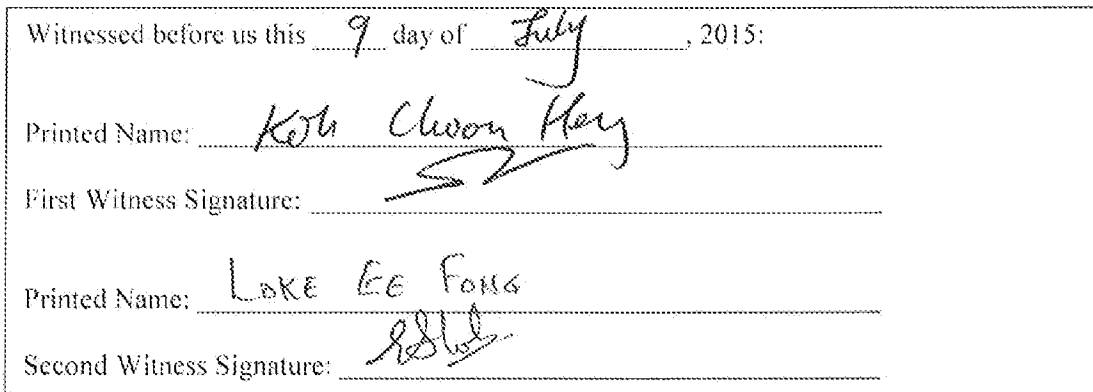 Witnessed before us this 9 day of July, 2015:
Printed Name: Koh Choon Heng
First Witness Signature:
Printed Name: LOKE EE FONG
Second Witness Signature: